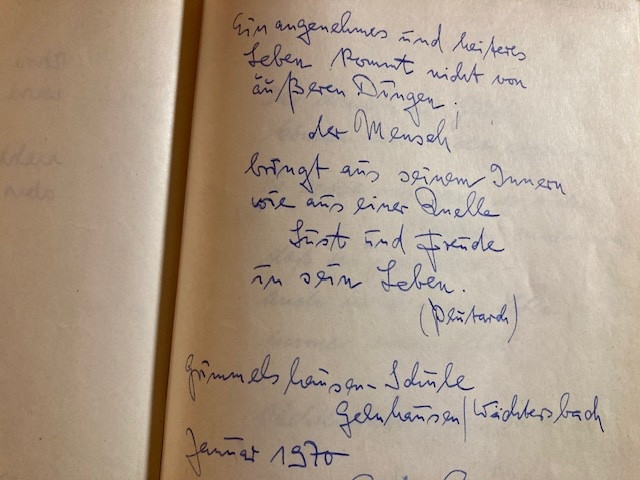 Ein angenehmes und heiteres
Leben kommt nicht von
äußeren Dingen!
der Mensch
bringt aus seinem Innern
wie aus einer Quelle
Lust und Freude
in sein Leben.
(Plutarch)
Grimmelshausen-Schule
Gelnhausen/Wächtersbach
Januar 1970